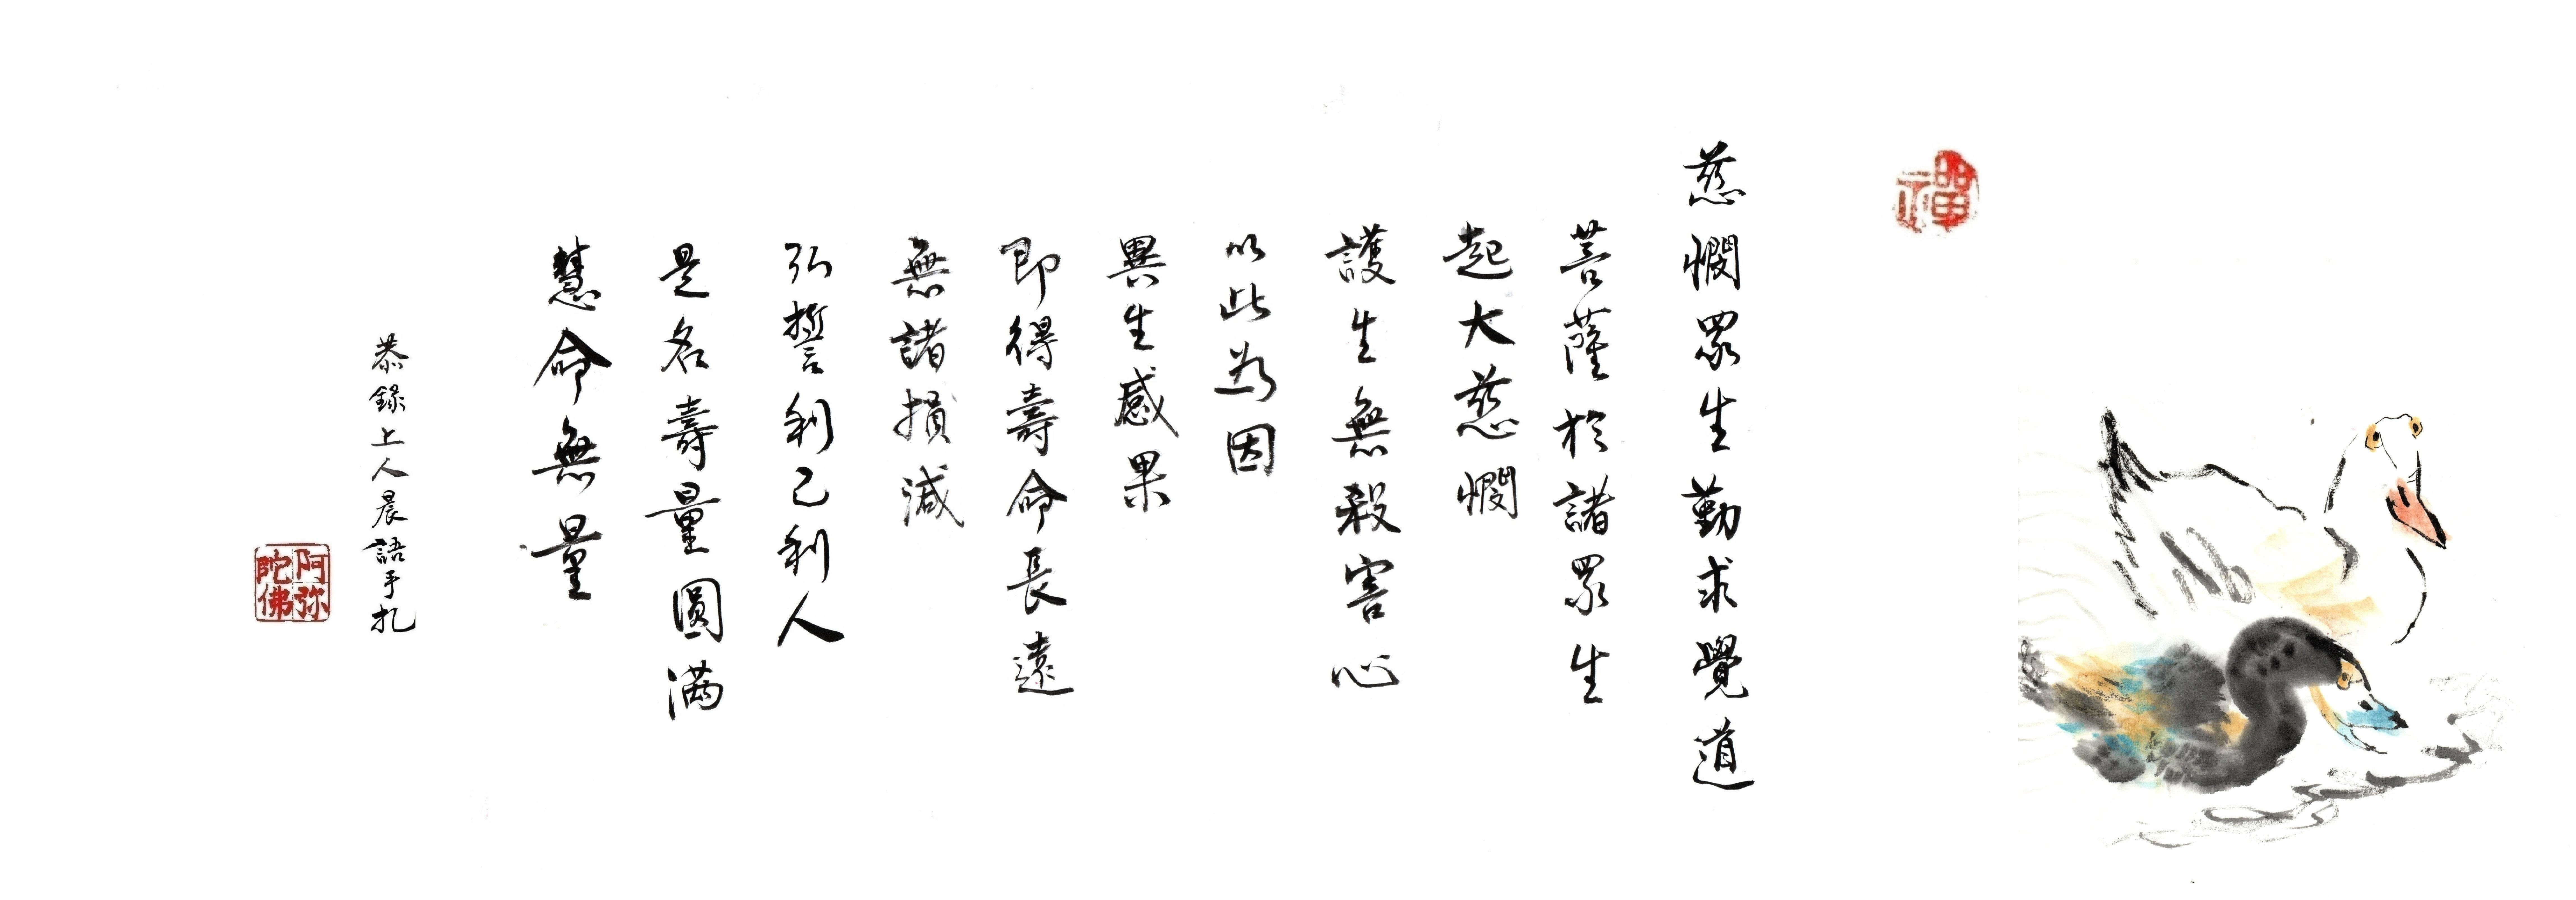 禪
慈憫眾生勤求覺道
菩薩於諸眾生
起大慈憫
護生無殺害心
以此為因
異生感果
即得壽命長遠
無諸損減
弘誓利己利人
是名壽量圓滿
慧命無量
恭錄上人晨語手札
阿弥陀佛